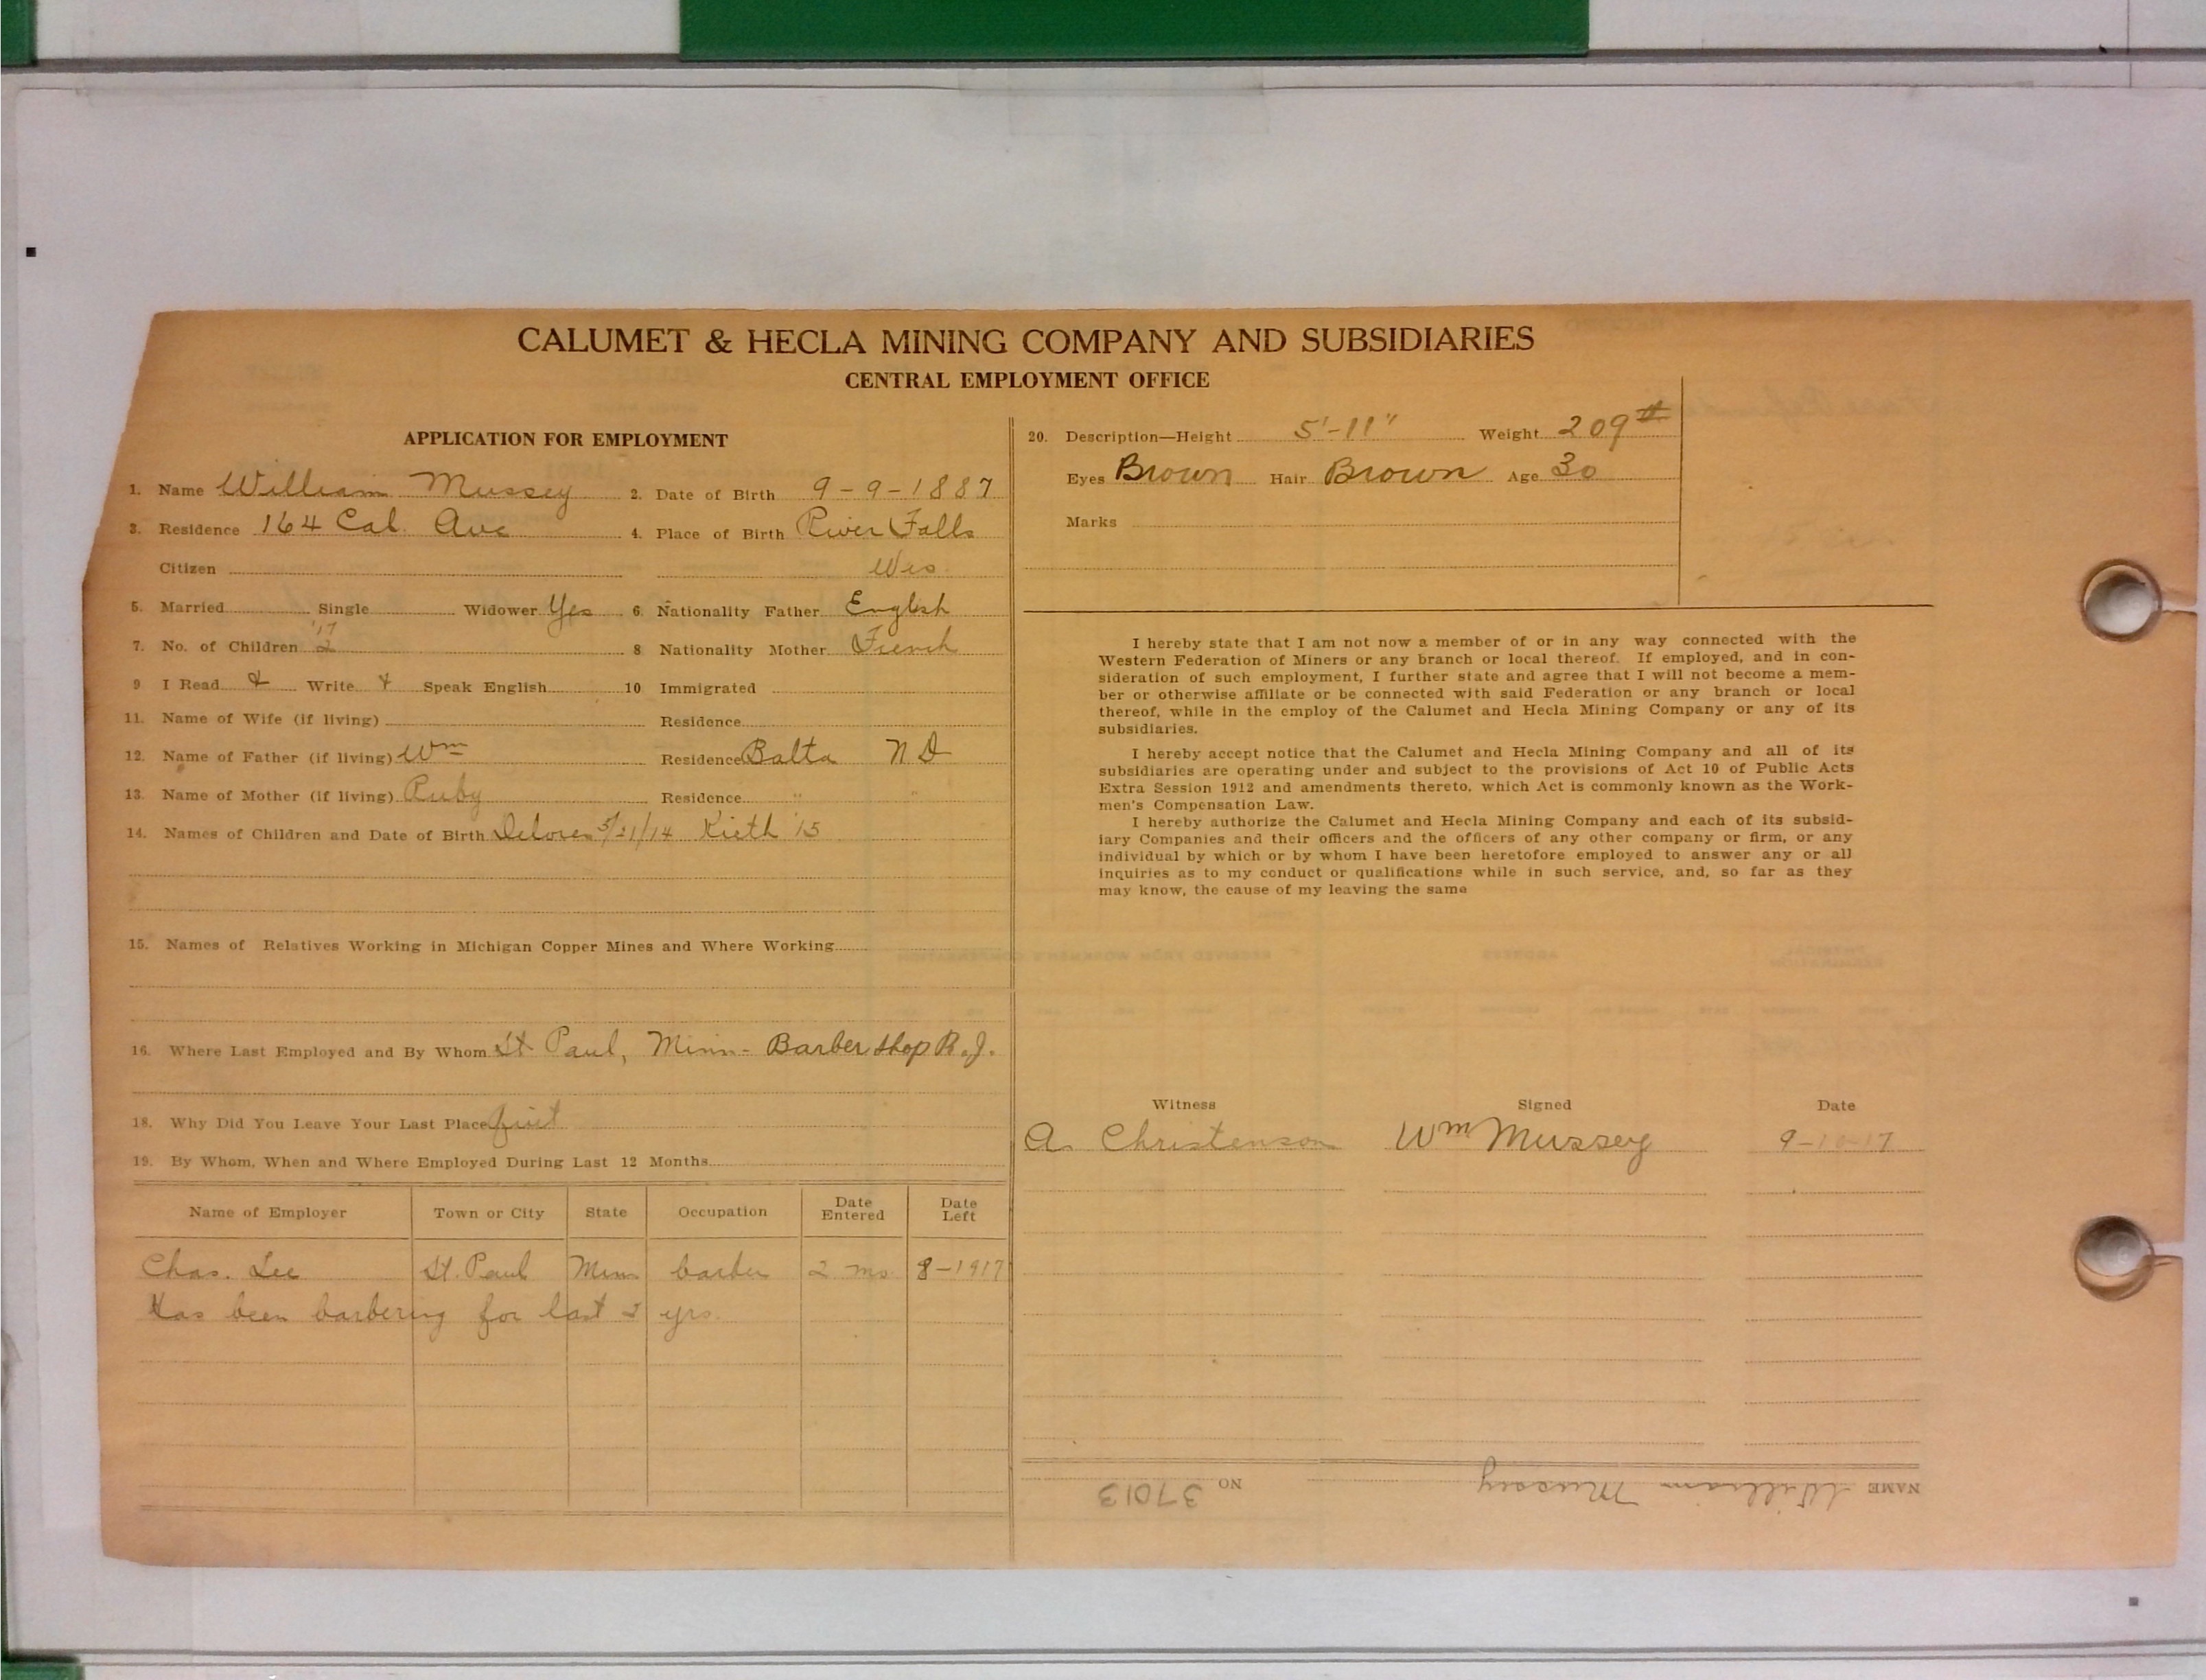 CALUMET & HECLA MINING COMPANY AND SUBSIDIARIES
CENTRAL EMPLOYMENT OFFICE
APPLICATION FOR EMPLOYMENT
1. Name William Mussey 2. Date of Birth 9-9-1887
3. Residence 164 Cal. Ave 4. Place of Birth River Falls
Citizen Wis
5. Married Single Widower Yes 6. Nationality Father English
'17
7. No. of Children 2 8 Nationality Mother French
9 I Read & Write & Speak English 10 Immigrated
11. Name of Wife (if living) Residence
12. Name of Father (if living) Wm Residence Balta N D
13. Name of Mother (if living) Ruby Residence " "
14. Names of Children and Date of Birth Delores 5/21/14 Kieth '15
15. Names of Relatives Working in Michigan Copper Mines and Where Working
16. Where Last Employed and By Whom St Paul, Minn - Barber shop R.J.
18. Why Did You Leave Your Last Place Quit
19. By Whom, When and Where Employed During Last 12 Months
Name of Employer Town or City State Occupation Date Entered Date Left
Chas. Lee St. Paul Minn barber 2 mo 8-1917
Has been barbering for last 2 yrs.
20. Description—Height 5'-11" Weight 209#
Eyes Brown Hair Brown Age 30
Marks
I hereby state that I am not now a member of or in any way connected with the
Western Federation of Miners or any branch or local thereof. If employed, and in con-
sideration of such employment, I further state and agree that I will not become a mem-
ber or otherwise affiliate or be connected with said Federation or any branch or local
thereof, while in the employ of the Calumet and Hecla Mining Company or any of its
subsidiaries.
I hereby accept notice that the Calumet and Hecla Mining Company and all of its
subsidiaries are operating under and subject to the provisions of Act 10 of Public Acts
Extra Session 1912 and amendments thereto, which Act is commonly known as the Work-
men's Compensation Law.
I hereby authorize the Calumet and Hecla Mining Company and each of its subsid-
iary Companies and their officers and the officers of any other company or firm, or any
individual by which or by whom I have been heretofore employed to answer any or all
inquiries as to my conduct or qualifications while in such service, and, so far as they
may know, the cause of my leaving the same
Witness Signed Date
A. Christenson Wm Mussey 9-10-17
NAME William Mussey NO 37013